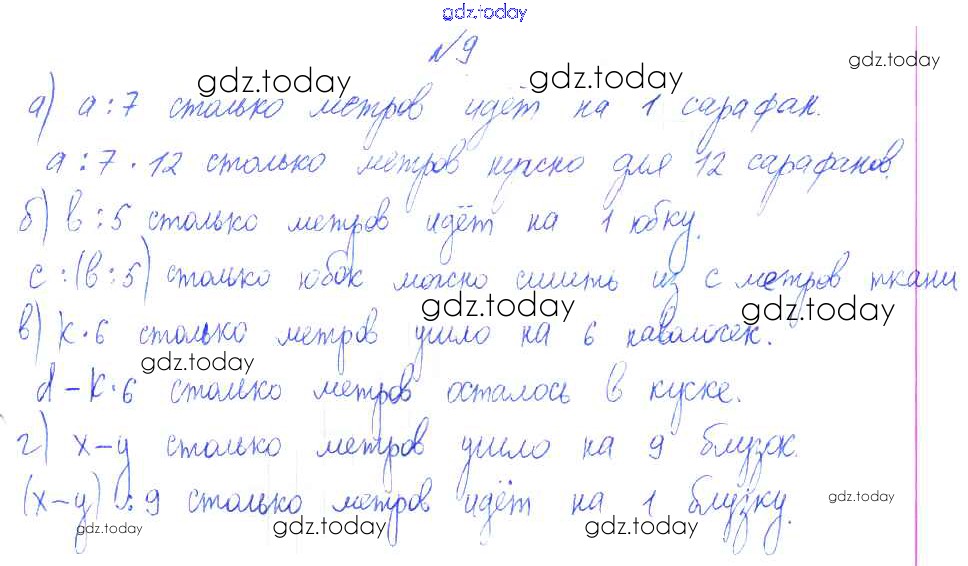 gdz.today
№9
gdz.today gdz.today gdz.today
а) a : 7 столько метров идёт на 1 сарафан.
a : 7 · 12 столько метров нужно для 12 сарафанов.
б) b : 5 столько метров идёт на 1 юбку.
c : (b : 5) столько юбок можно сшить из c метров ткани
gdz.today gdz.today
в) k · 6 столько метров ушло на 6 наволочек.
gdz.today
d - k · 6 столько метров осталось в куске.
г) x - y столько метров ушло на 9 блузок.
(x - y) : 9 столько метров идёт на 1 блузку.
gdz.today gdz.today gdz.today gdz.today